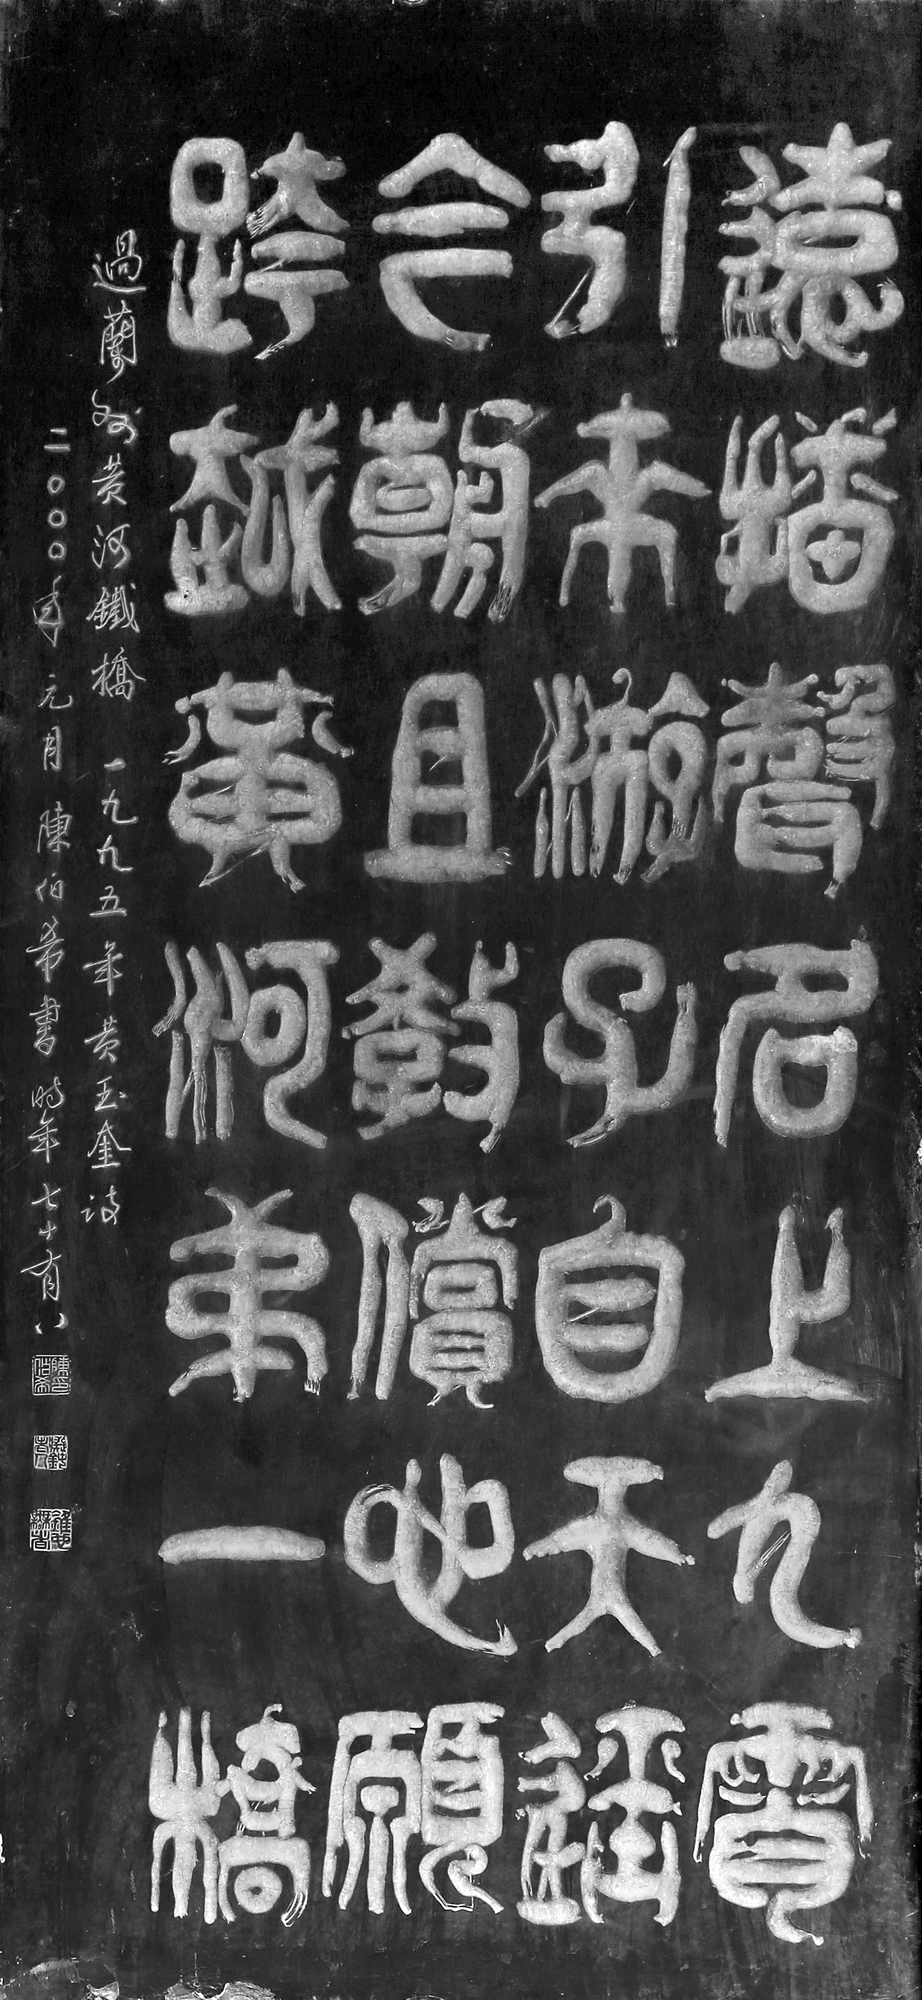 遠播聲名上九霄
引來游子自天遙
今朝且教償心願
跨越黃河弟一橋
過蘭州黄河鐵橋 一九九五年黄玉奎詩
二〇〇〇年元月 陳伯希書 時年七十有八